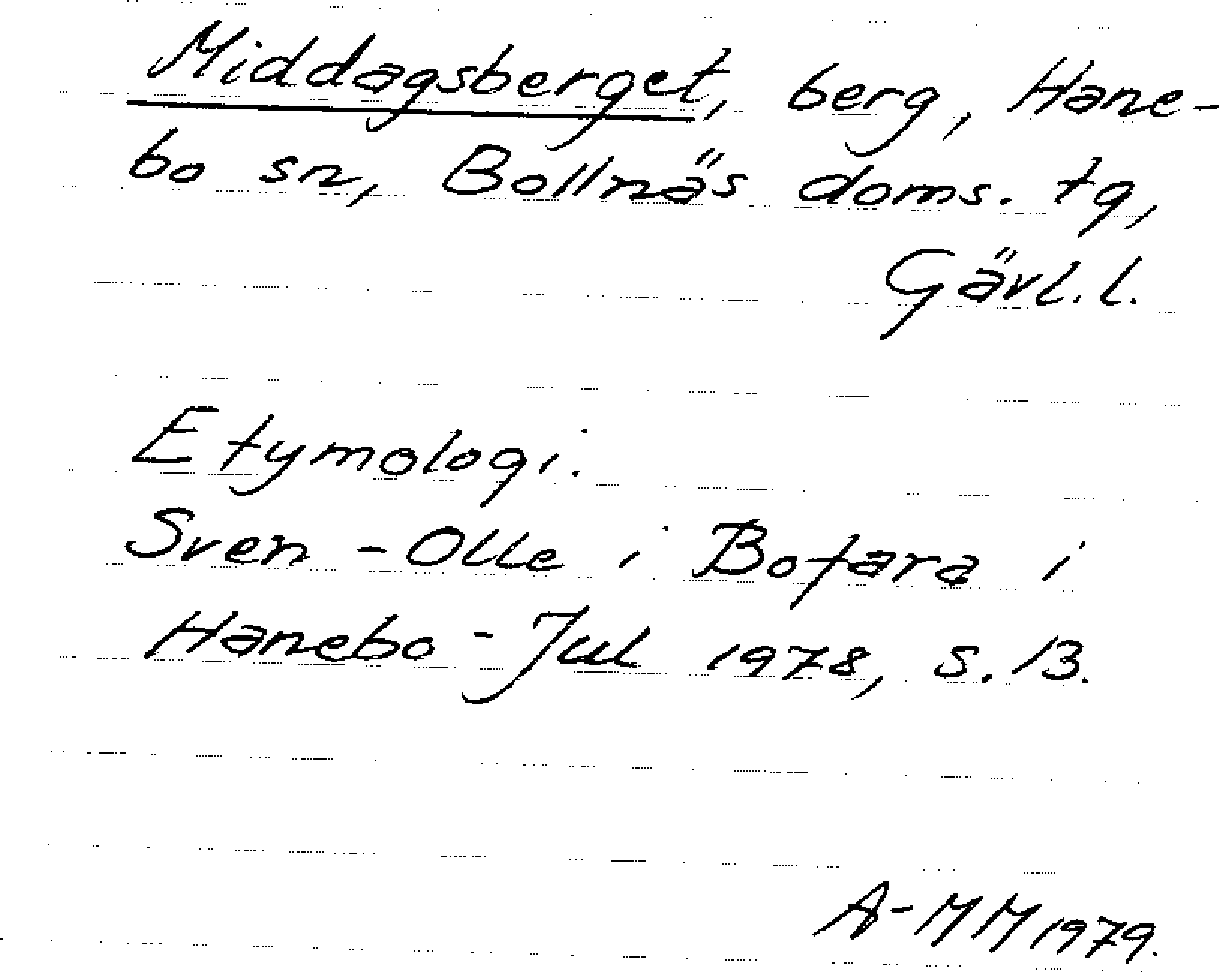 Middagsberget, berg, Hane-
bo sn, Bollnäs doms. tg,
Gävl. l.
Etymologi.
Sven-Olle i Bofara i
Hanebo-Jul 1978, s. 13.
A-MM 1979.